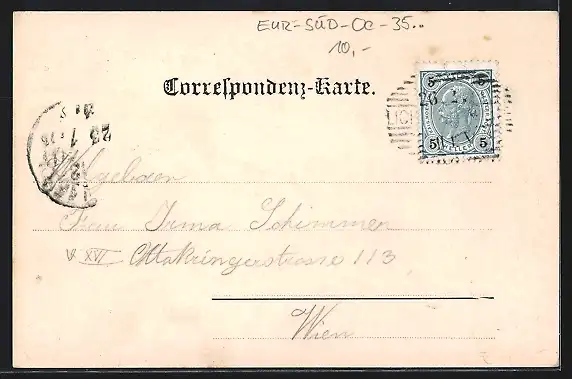 EUR-SÜD-OC-35..
10,-
Correspondenz-Karte.
5 5
26
LICH
5 5
23 1
Frau Irma Schimmer
V XVI Ottakringerstrasse 113
Wien